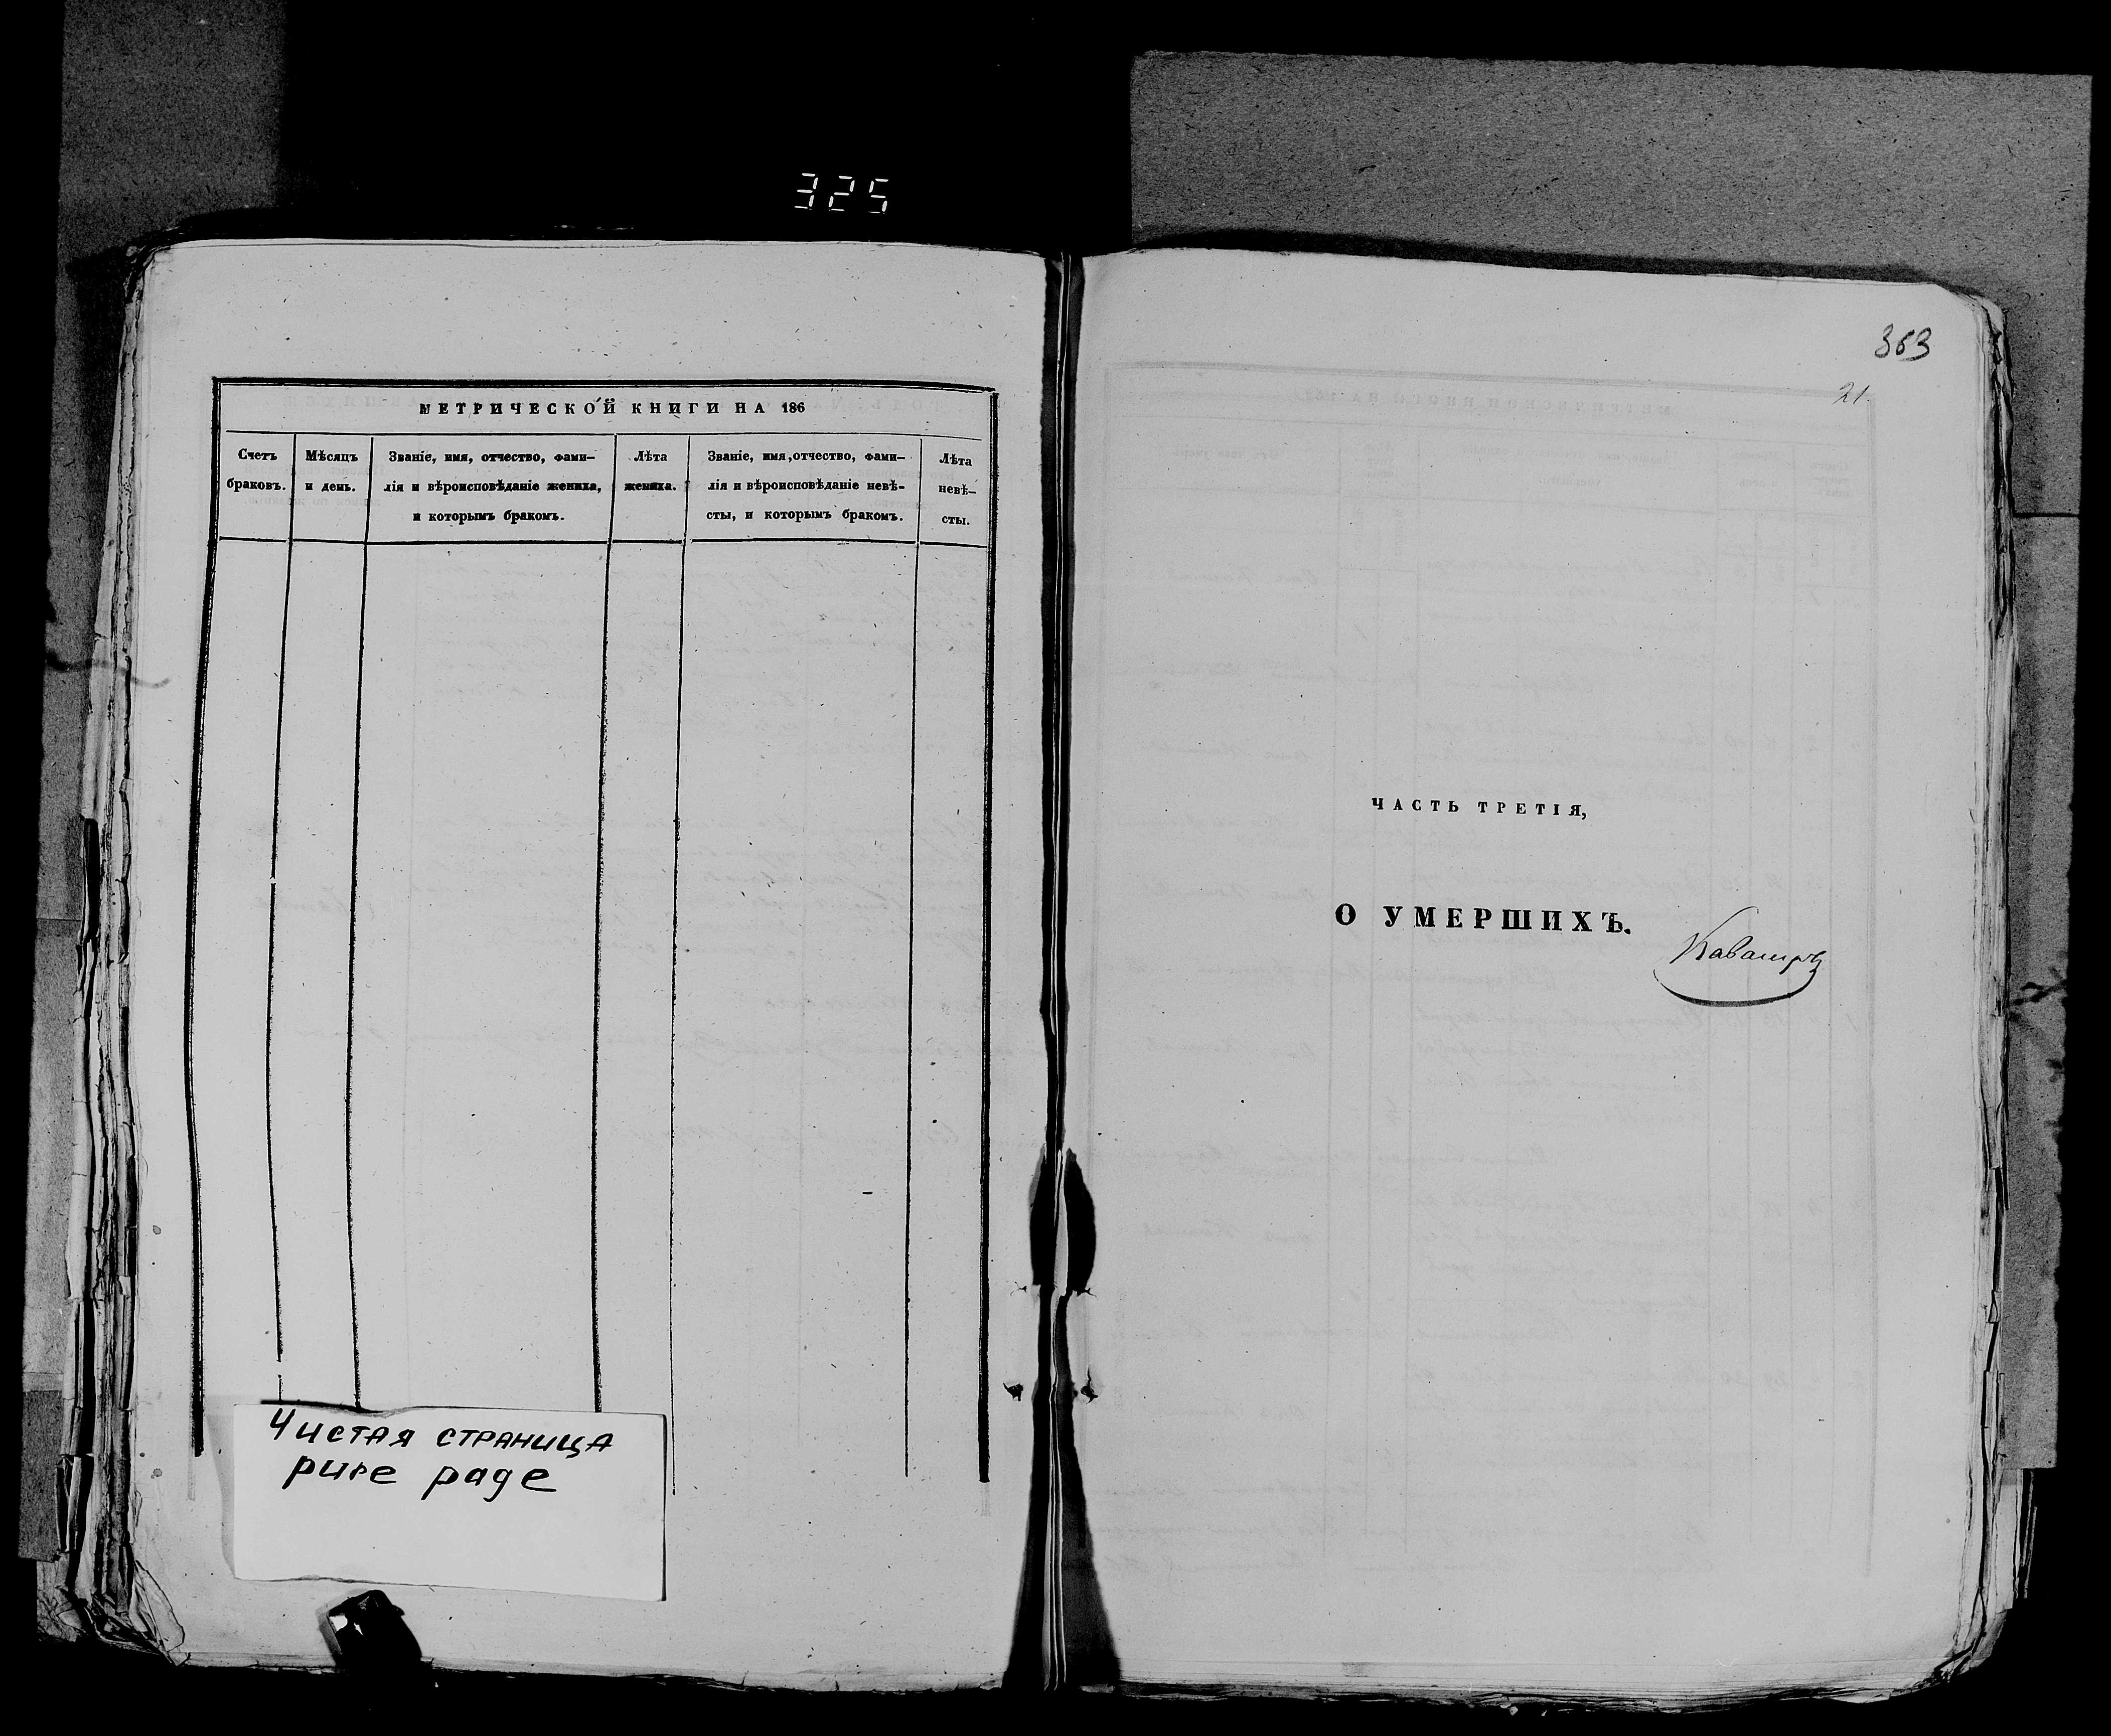 325
МЕТРИЧЕСКОЙ КНИГИ НА 186
Счетъ
браковъ.
Мѣсяцъ
и день.
Званіе, имя, отчество, фами-
лія и вѣроисповѣданіе жениха,
и которымъ бракомъ.
Лѣта
жениха.
Званіе, имя, отчество, фами-
лія и вѣроисповѣданіе невѣ-
сты, и которымъ бракомъ.
Лѣта
невѣ-
сты.
Чистая страница
pure page
363
21.
ЧАСТЬ ТРЕТІЯ,
О УМЕРШИХЪ.